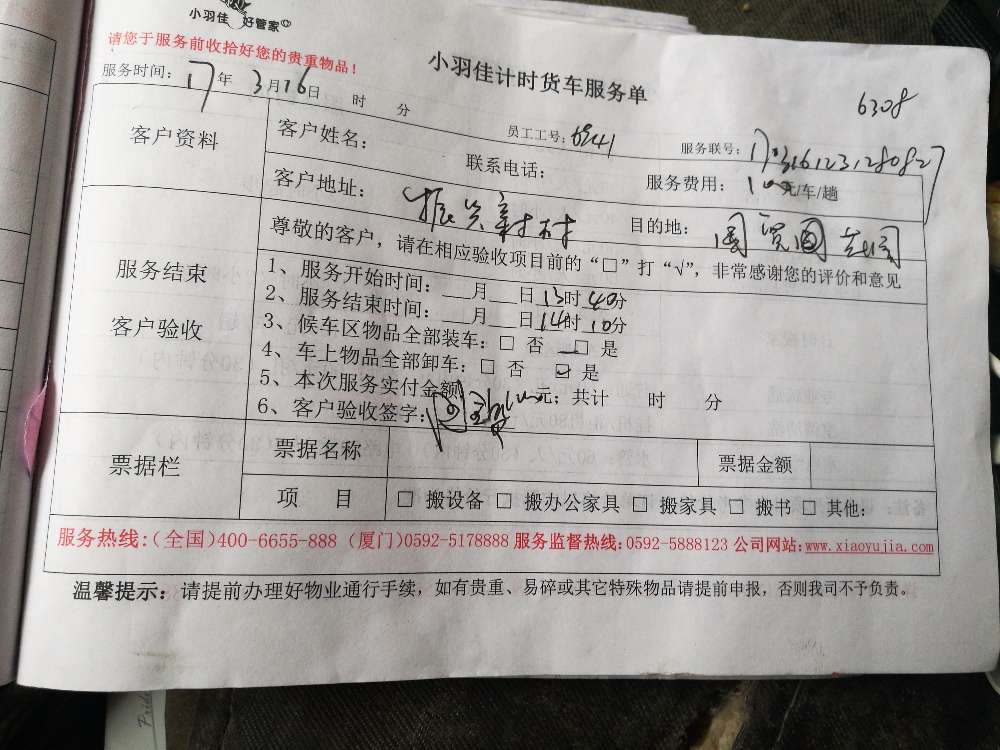 小羽佳 好管家
请您于服务前收拾好您的贵重物品!
小羽佳计时货车服务单
6308
服务时间: 17年 3月16日 时 分
员工工号:
服务联号: 1703161231280827
客户资料
客户姓名:
联系电话:
服务费用: 100元/车/趟
客户地址: 振兴新村
目的地:
服务结束
客户验收
尊敬的客户,请在相应验收项目前的“□”打“√”,非常感谢您的评价和意见
1、服务开始时间:___月___日13时40分
2、服务结束时间:___月___日14时10分
3、候车区物品全部装车:□ 否 □ 是
4、车上物品全部卸车:□ 否 ☑ 是
5、本次服务实付金额 元;共计 时 分
6、客户验收签字:
票据栏
票据名称
票据金额
项 目
□ 搬设备 □ 搬办公家具 □ 搬家具 □ 搬书 □ 其他:
服务热线:(全国)400-6655-888 (厦门)0592-5178888 服务监督热线:0592-5888123 公司网站:www.xiaoyujia.com
温馨提示:请提前办理好物业通行手续,如有贵重、易碎或其它特殊物品请提前申报,否则我司不予负责。